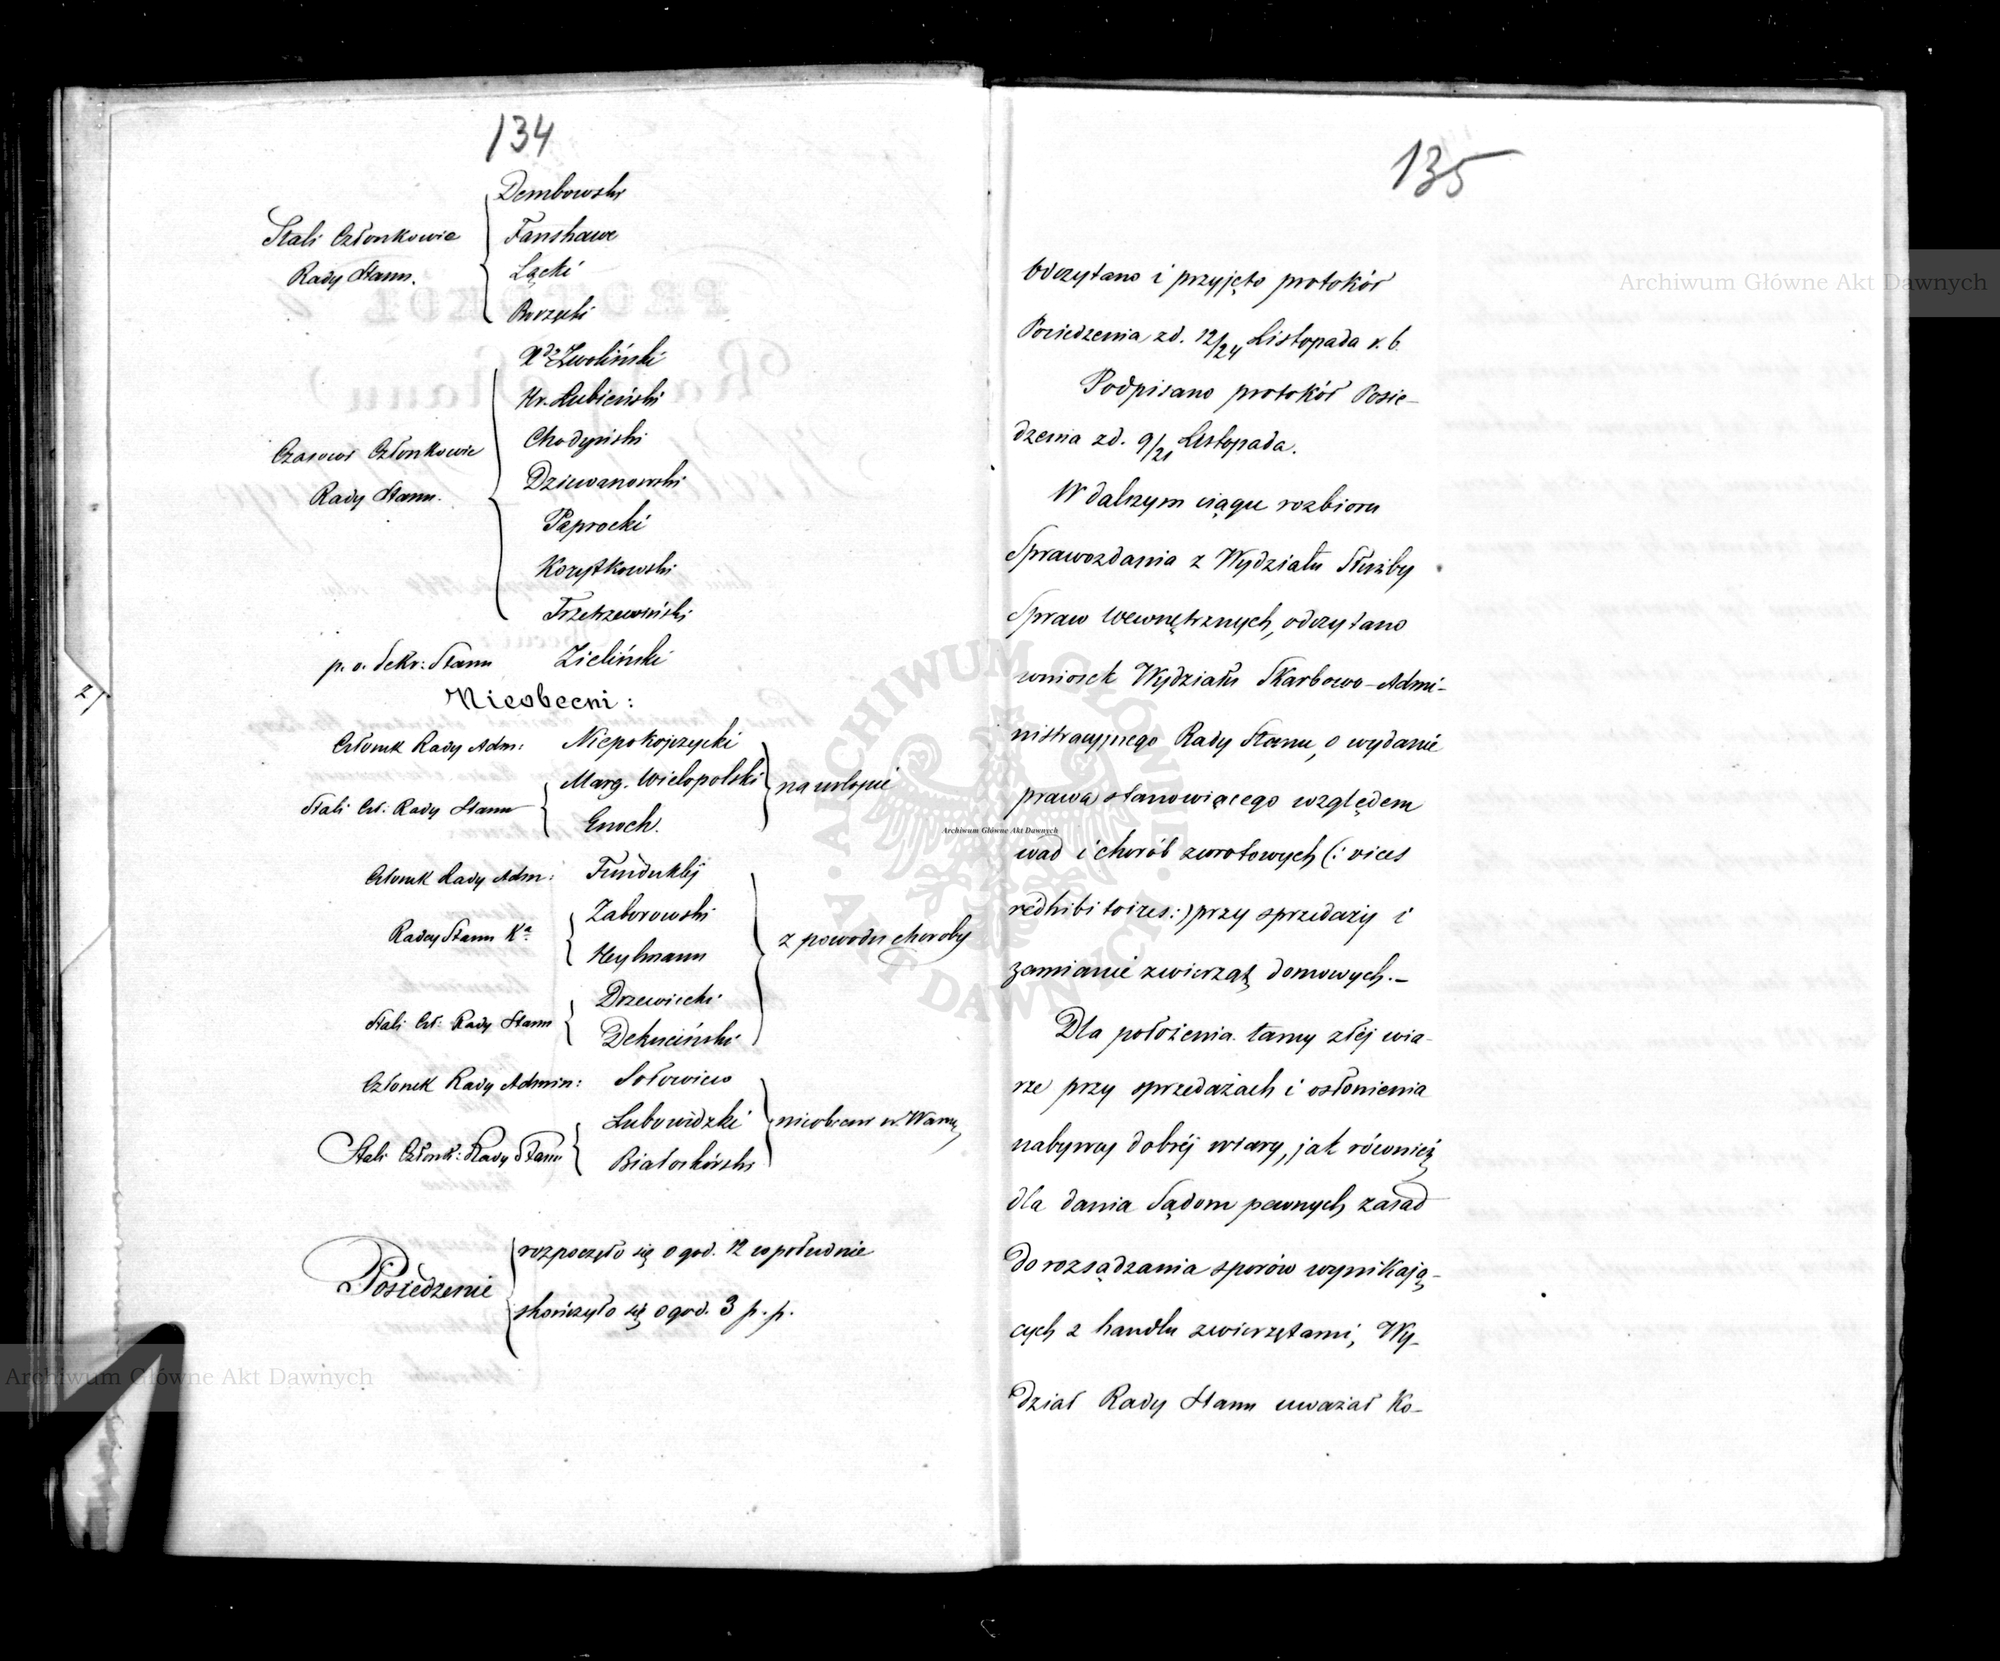 134
Stali Członkowie
Rady Stanu.
Dembowski
Fanshawe
Łącki
Borzęcki
Czasowi Członkowie
Rady Stanu.
Xdz Zwoliński
Hr. Łubieński
Chodyński
Dziewanowski
Paprocki
Korytkowski
Trzetrzewiński
p. o. Sekr: Stanu Zieliński
Nieobecni:
Członek Rady Adm: Niepokojczycki
Stali Czł: Rady Stanu
Marg. Wielopolski
Enoch.
na urlopie
Członek Rady Adm: Funduklej
Radcy Stanu Ka
Zaborowski
Heylmann
Stali Czł: Rady Stanu
Drzewiecki
Dekuciński
z powodu choroby
Członek Rady Admin: Sołowiew
Stali Członk: Rady Stanu
Lubowidzki
Białoskórski
nieobecni w Warsz
Posiedzenie
rozpoczęło się o god. 12 w południe
skończyło się o god. 3 p. p.
135
Odczytano i przyjęto protokół
Posiedzenia z d. 12/24 Listopada r. b.
Podpisano protokół Posie-
dzenia z d. 9/21 Listopada.
W dalszym ciągu rozbioru
Sprawozdania z Wydziału Służby
Spraw Wewnętrznych, odczytano
wniosek Wydziału Skarbowo-Admi-
nistracyjnego Rady Stanu, o wydanie
prawa stanowiącego względem
wad i chorób zwrotowych (: vices
redhibitoires :) przy sprzedaży i
zamianie zwierząt domowych. -
Dla położenia tamy złéj wia-
rze przy sprzedażach i osłonienia
nabywcy dobréj wiary, jak również
dla dania Sądom pewnych zasad
do rozsądzania sporów wynikają-
cych z handlu zwierzętami, Wy-
dział Rady Stanu uważał ko-
Archiwum Główne Akt Dawnych
Archiwum Główne Akt Dawnych
Archiwum Główne Akt Dawnych
ARCHIWUM GŁÓWNE · AKT DAWNYCH ·